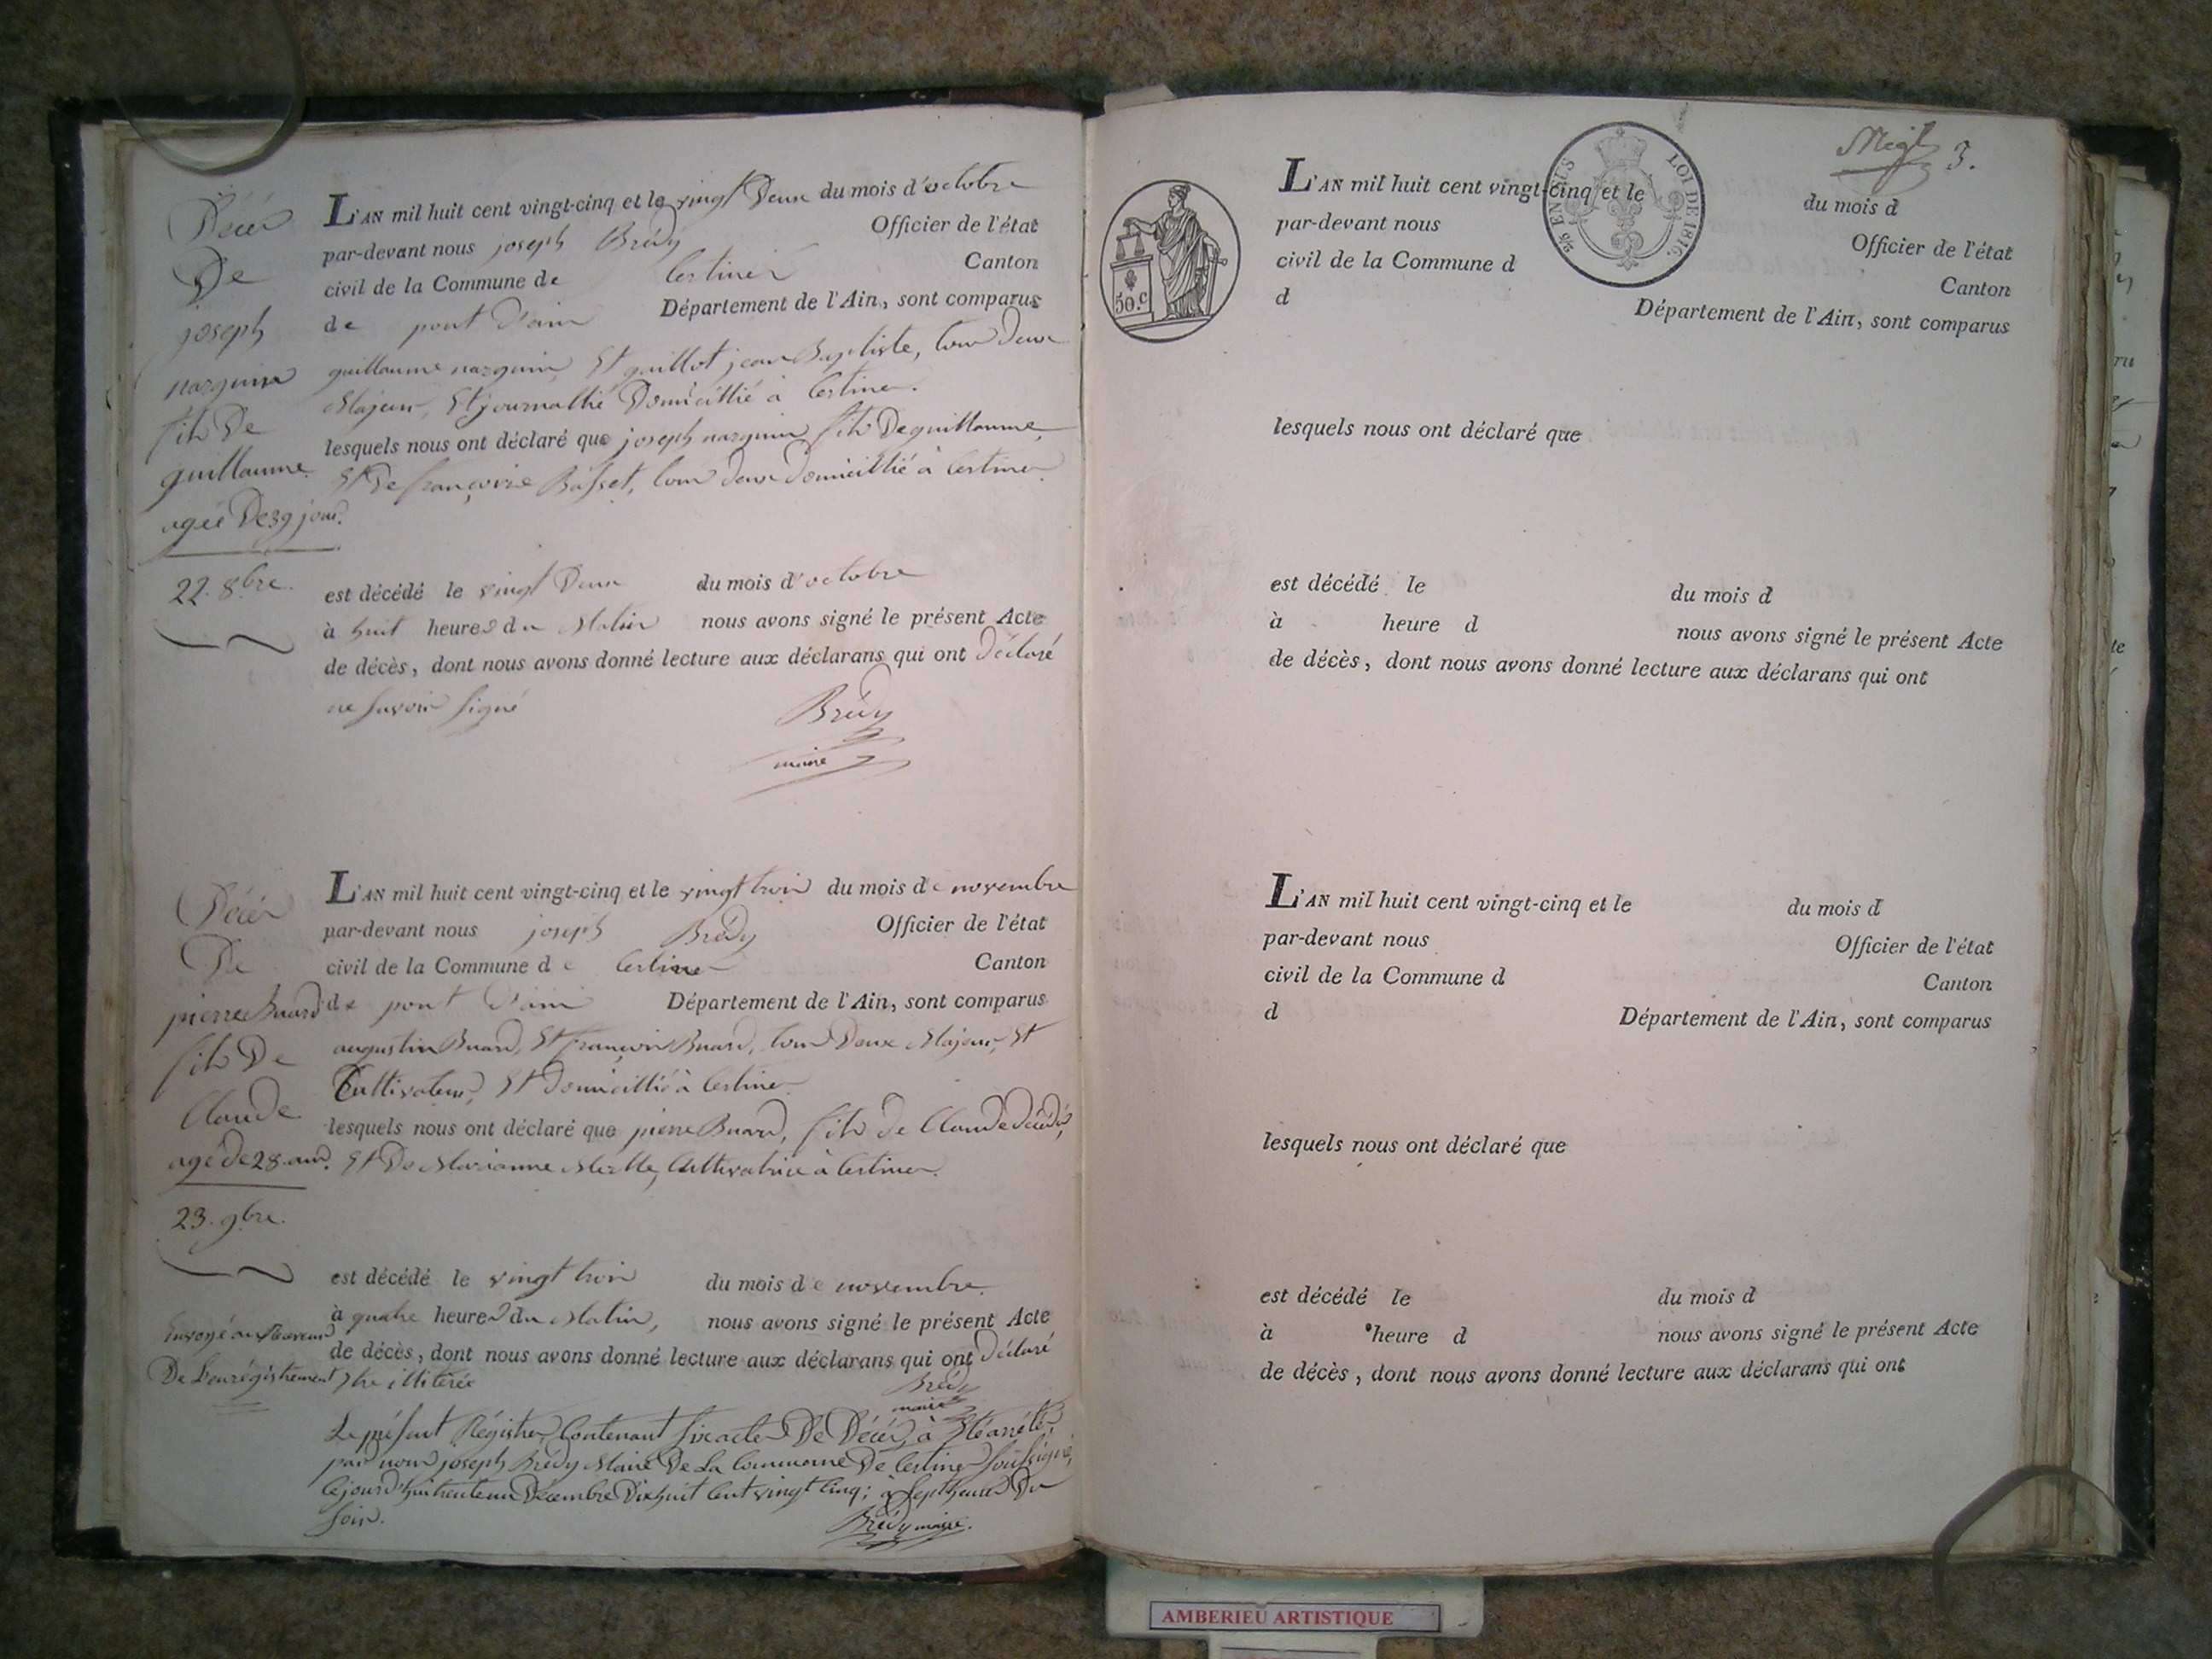 Décès
De
joseph
narguin
fils De
guillaume
agée De 39 jours.
22. 8bre.
L'AN mil huit cent vingt-cinq et le vingt Deux du mois d'octobre
par-devant nous joseph Brédy Officier de l'état
civil de la Commune de Certines Canton
de pont d'ain Département de l'Ain, sont comparus
guillaume narguin, Et guillot jean Baptiste, tous deux
Majeurs, Et journallié Domicillié à Certines.
lesquels nous ont déclaré que joseph narguin fils De guillaume,
Et De françoise Basset, tous deux domicillié à Certines.
est décédé le vingt Deux du mois d'octobre
à huit heures du Matin nous avons signé le présent Acte
de décès, dont nous avons donné lecture aux déclarans qui ont déclaré
ne savoir signé
Brédy
maire
Décès
De
pierre Buard
fils De
Claude
agé de 28. ans.
23. 9bre.
Envoyé au Receveur
De L'enrégistrement
L'AN mil huit cent vingt-cinq et le vingt trois du mois de novembre
par-devant nous joseph Brédy Officier de l'état
civil de la Commune de Certines Canton
de pont d'ain Département de l'Ain, sont comparus
augustin Buard, Et françois Buard, tous Deux Majeurs, Et
Cultivateurs, Et Domicillié à Certines
lesquels nous ont déclaré que pierre Buard, fils de Claude décédé,
Et De Marianne Merlle, Cultivatrice à Certines.
est décédé le vingt trois du mois de novembre.
à quatre heures du Matin, nous avons signé le présent Acte
de décès, dont nous avons donné lecture aux déclarans qui ont déclaré
Etre illitérés
Brédy
maire
Le présent Régistre, Contenant six actes De Décès, à Eté arrêté,
par nous joseph Brédy Maire De La Commune De Certines soussigné,
Cejourd'hui trente un Décembre Dix huit Cent vingt Cinq; à sept heures Du
soir.
Brédy maire.
3.
50.C
LOI DE 1816
L'AN mil huit cent vingt-cinq et le du mois d
par-devant nous Officier de l'état
civil de la Commune d Canton
d Département de l'Ain, sont comparus
lesquels nous ont déclaré que
est décédé le du mois d
à heure d nous avons signé le présent Acte
de décès, dont nous avons donné lecture aux déclarans qui ont
L'AN mil huit cent vingt-cinq et le du mois d
par-devant nous Officier de l'état
civil de la Commune d Canton
d Département de l'Ain, sont comparus
lesquels nous ont déclaré que
est décédé le du mois d
à heure d nous avons signé le présent Acte
de décès, dont nous avons donné lecture aux déclarans qui ont
AMBERIEU ARTISTIQUE